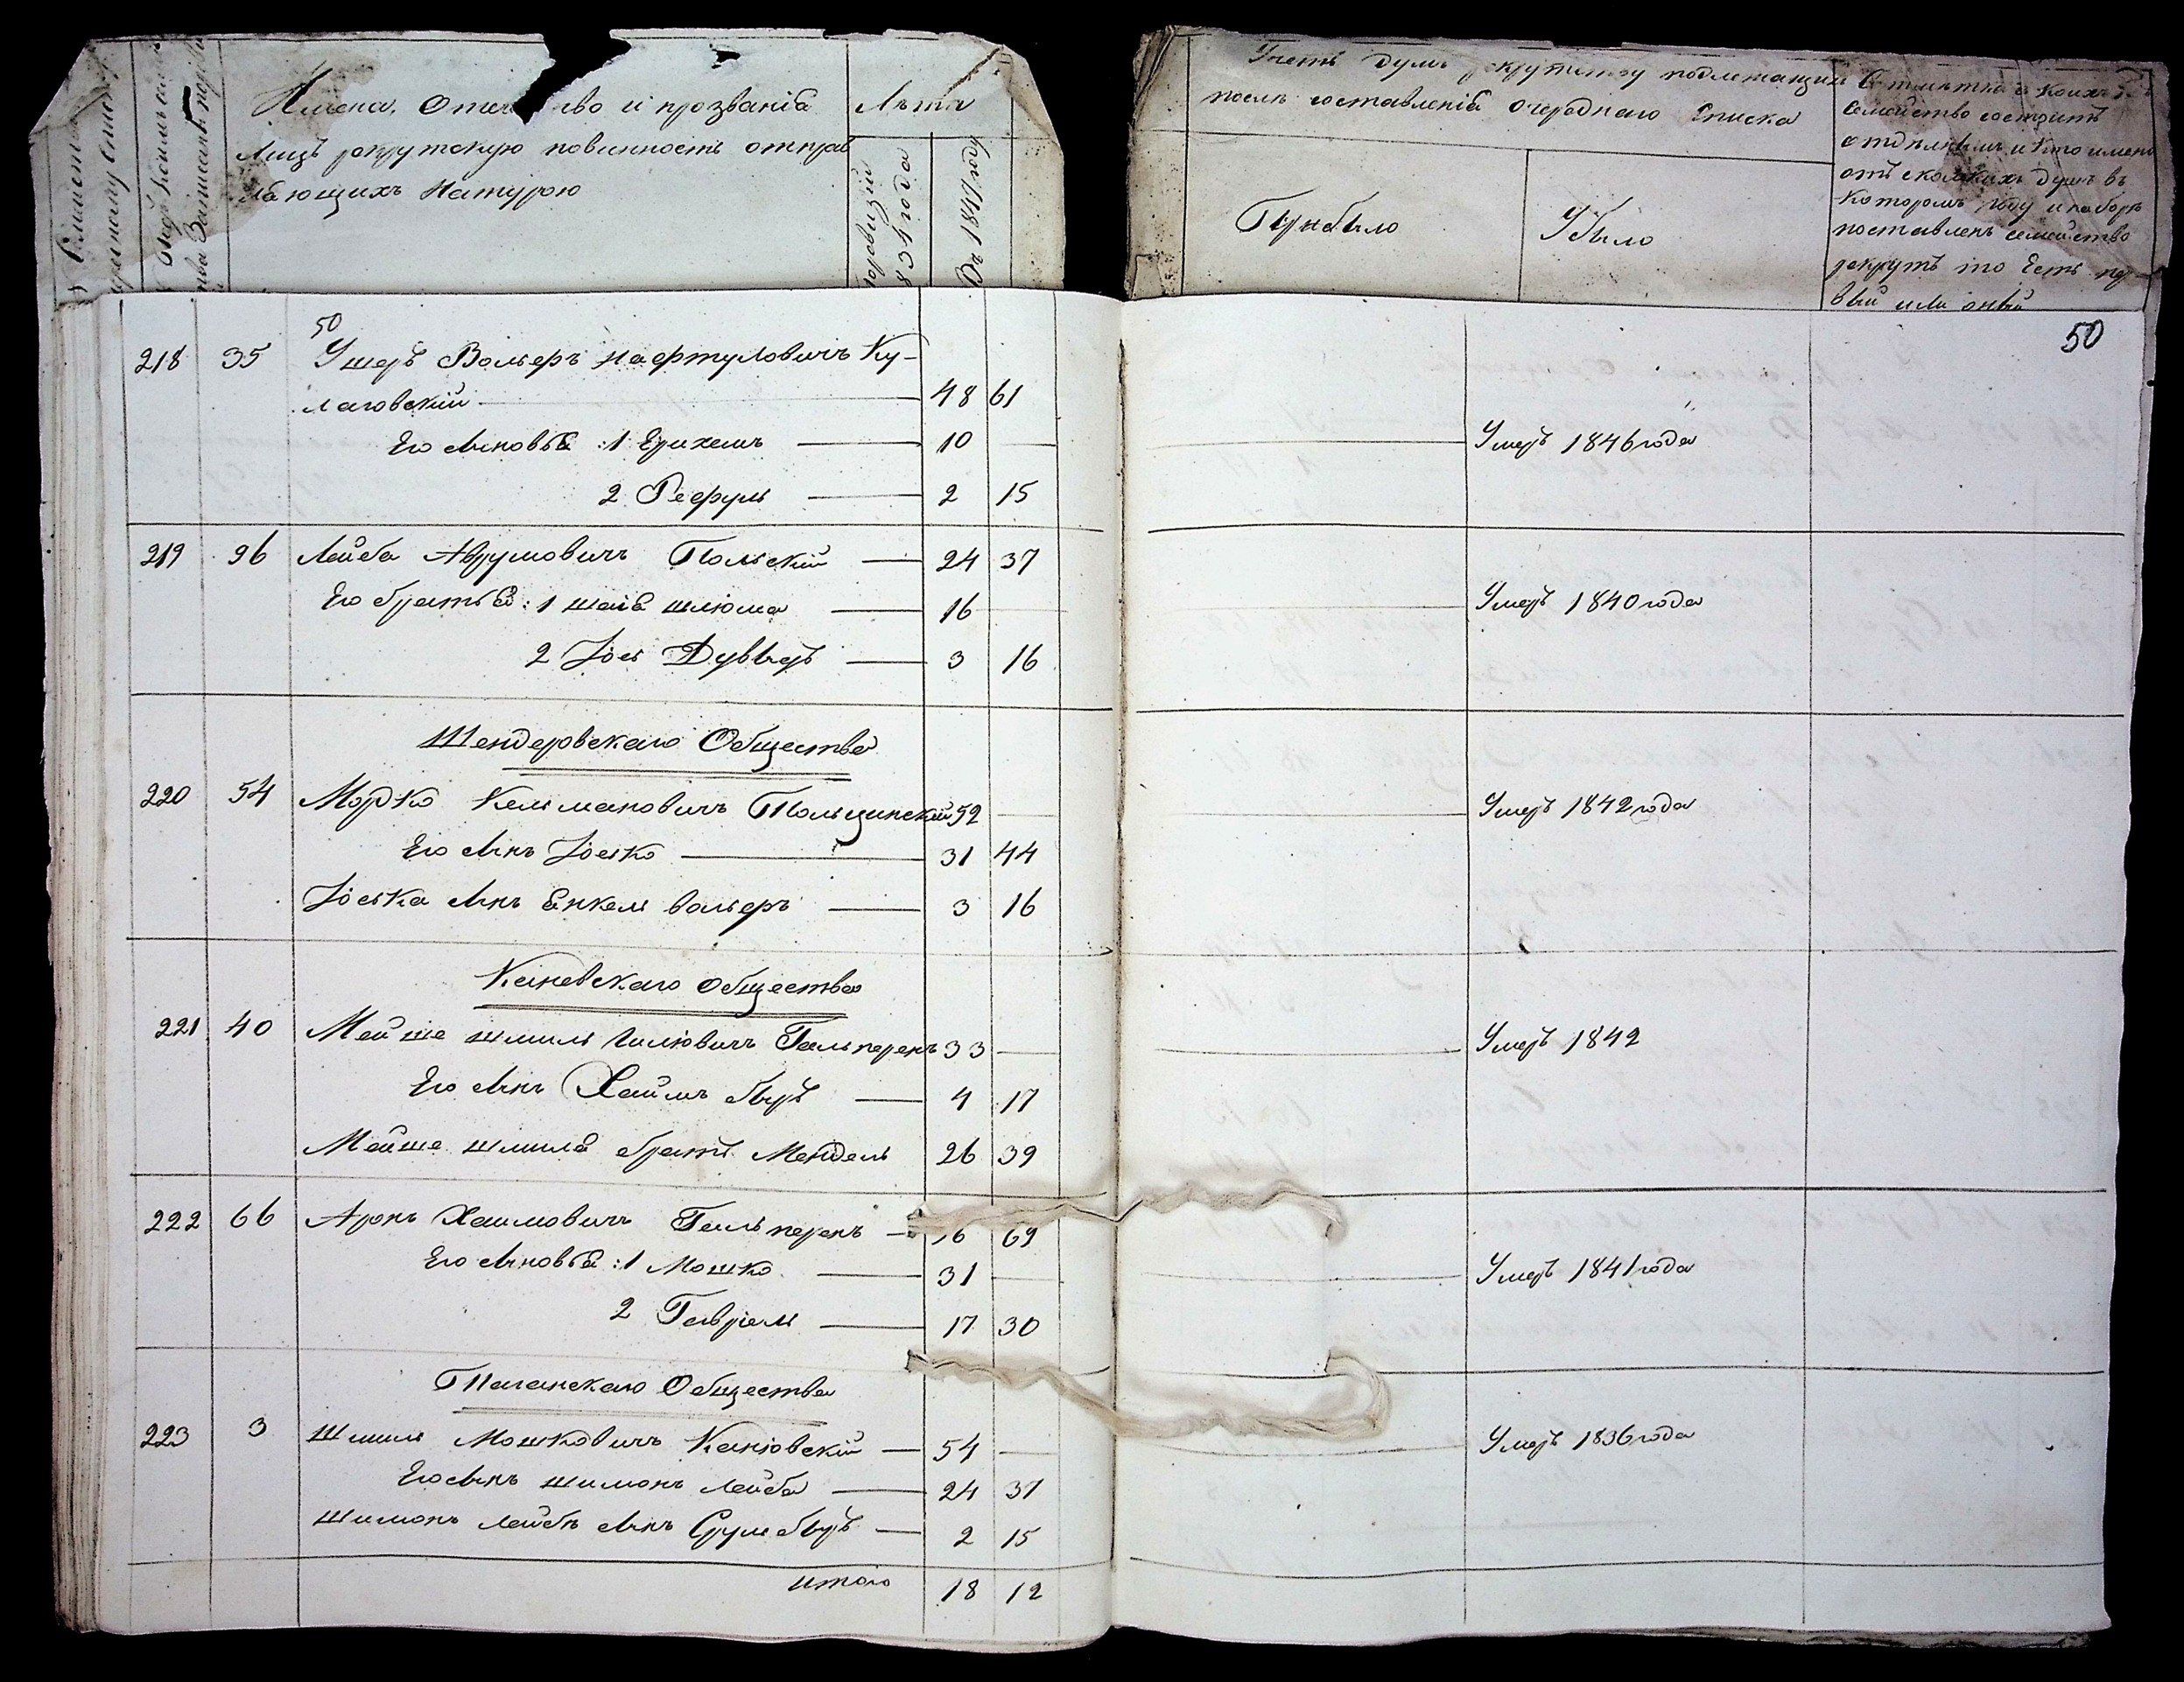 Имена, Отечество и прозванія
Лицъ рекрутскую повинность отправ
ляющихъ Натурою
Лѣта
въ 1847 году
Учетъ душъ рекрутству подлежащихъ
послѣ составленія Очереднаго Списка
Прибыло
Убыло
Отмѣтка въ коихъ
Семейство состоитъ
отдѣлкымъ и Кто имено
отъ сколькихъ душъ въ
Которомъ году и наборѣ
поставленъ семейство
рекрутъ то Есть пер-
вый или оный
50
50
218 35 Ушеръ Вольфъ Нафтуловичъ Ку-
лаговскій 48 61
Его сыновья: 1 Ерихемъ 10 Умеръ 1846 года
2 Рефуль 2 15
219 96 Лейба Аврумовичъ Польскій 24 37
Его братья: 1 шаія шлюма 16 Умеръ 1840 года
2 Іось Дувыдъ 3 16
Шендеровскаго Общества
220 54 Мордко Кельмановичъ Тольчинскій 52 Умеръ 1842 года
Его сынъ Іосько 31 44
Іоська сынъ Янкель вольфъ 3 16
Каневскаго Общества
221 40 Мейше шмиль Гилювичъ Гальперенъ 33 Умеръ 1842
Его сынъ Хаимъ беръ 4 17
Мейше шмиля братъ Мендель 26 39
222 66 Аронъ Хаимовичъ Гальперенъ 56 69
Его сыновья: 1 Мошко 31 Умеръ 1841 года
2 Гаврiель 17 30
Таганскаго Общества
223 3 Шмиль Мошковичъ Канювскій 54 Умеръ 1836 года
Его сынъ шимонъ лейба 24 37
Шимонъ лейбы сынъ Сруль беръ 2 15
итого 18 12